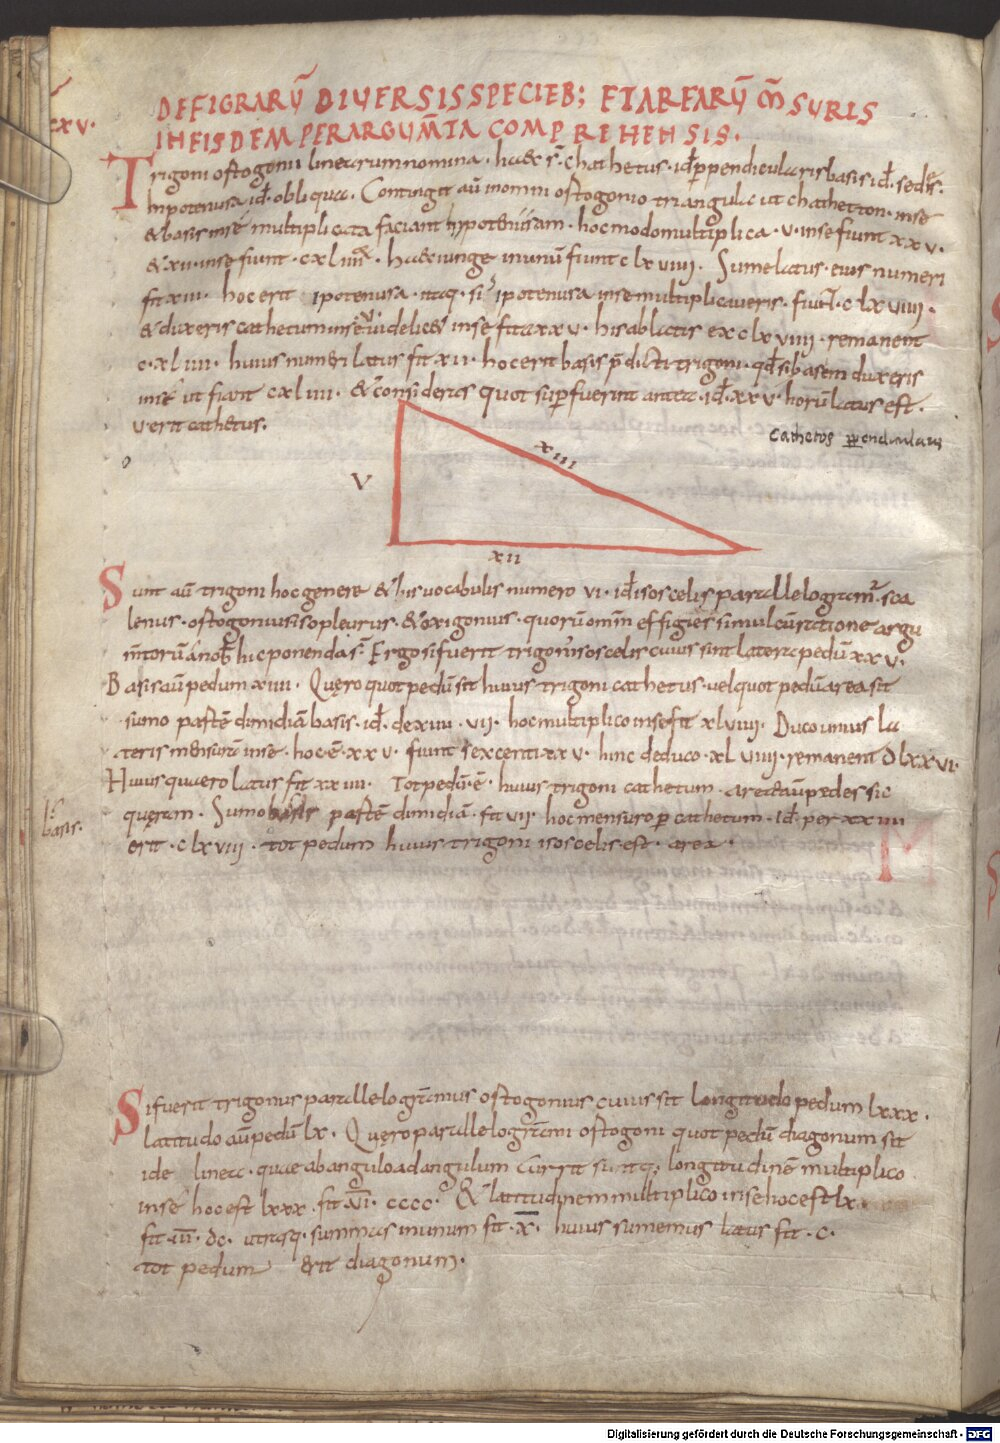 DE FIGRARŪ DIVERSIS SPECIEB; ET AREARŪ M̄SURIS
xxv.
IN EISDEM PER ARGUM̄TA COMPREHENSIS.
Trigoni ostogonii linearum nomina. haec s̄. chathetus. id̄ perpendicularis basis. id̄. sedes.
hipotenusa id̄. obliqua. Contingit aū in omni ostogonio triangulo ut chatheton. inse
& basis insē multiplicata faciant hypotenusam. hoc modo multiplica. v. inse fiunt xxv.
& xii. inse fiunt. cxliiii. haec iunge in unū fiunt clxviiii. Sume latus. eius numeri
fit xiii. hoc erit ipotenusa. itaq. si ipotenusa inse multiplicaveris. fiunt. clxviiii.
& duxeris cathetum inse videlic& inse fit xxv. his ablatis ex clxviiii. remanent
c.xliiii. huius numeri latus fit xii. hoc erit basis p̄dicti trigoni. qd̄ si basem duxeris
insē ut fiant cxliiii. & consideras quot supfuerint antea. id̄. xxv. horū latus est.
v erit cathetus.
cathetos ppendicularis
V
xiii
xii
Sunt aū trigoni hoc genere & his vocabulis numero vi. id̄ isoscelis parallelogram̄. sca
lenus. ostogonius isopleurus. & oxigonius. quorū omnī effigies simul cū ratione argu
m̄torū a nob̄ hic ponenda s̄. Ergo si fuerit trigon isoscelis cuius sint latera pedū xxv.
Basis aū pedum xiiii. Quęro quot pedū sit huius trigoni cathetus. vel quot pedū area sit
sumo partē dimidiā basis. id̄. de xiiii. vii. hoc multiplico inse fit xlviiii. Duco unius la
teris mensurā inse. hoc. ē. xxv. fiunt sexcenti xxv. hinc deduco. xlviiii. remanent dlxxvi.
Huius quaero latus fit xxiiii. Tot pedū. ē. huius trigoni cathetum. area aū pedes sic
quęram. Sumo basis partē dimidiā. fit vii. hoc mensuro p cathetum. id̄. per xxiiii
basis.
erit. clxviii. tot pedum huius trigoni isoscelis est. area.
Si fuerit trigonus parallelogrāmus ostogonius cuius sit longitudo pedum lxxx.
latitudo aū pedū lx. Quęro parallelogrāmi ostogoni quot pedū diagonum sit
ide linea. quae ab angulo ad angulum currit sumtq; longitudinē multiplico
insē hoc est lxxx. fit. v̄ı. cccc. & latitudinem multiplico inse hoc est lx.
fit. ı̄ı̄ı. dc. utrasq. summas in unum fit. x̄. huius sumemus latus fit. c.
tot pedum erit diagonum.
Digitalisierung gefördert durch die Deutsche Forschungsgemeinschaft - DFG